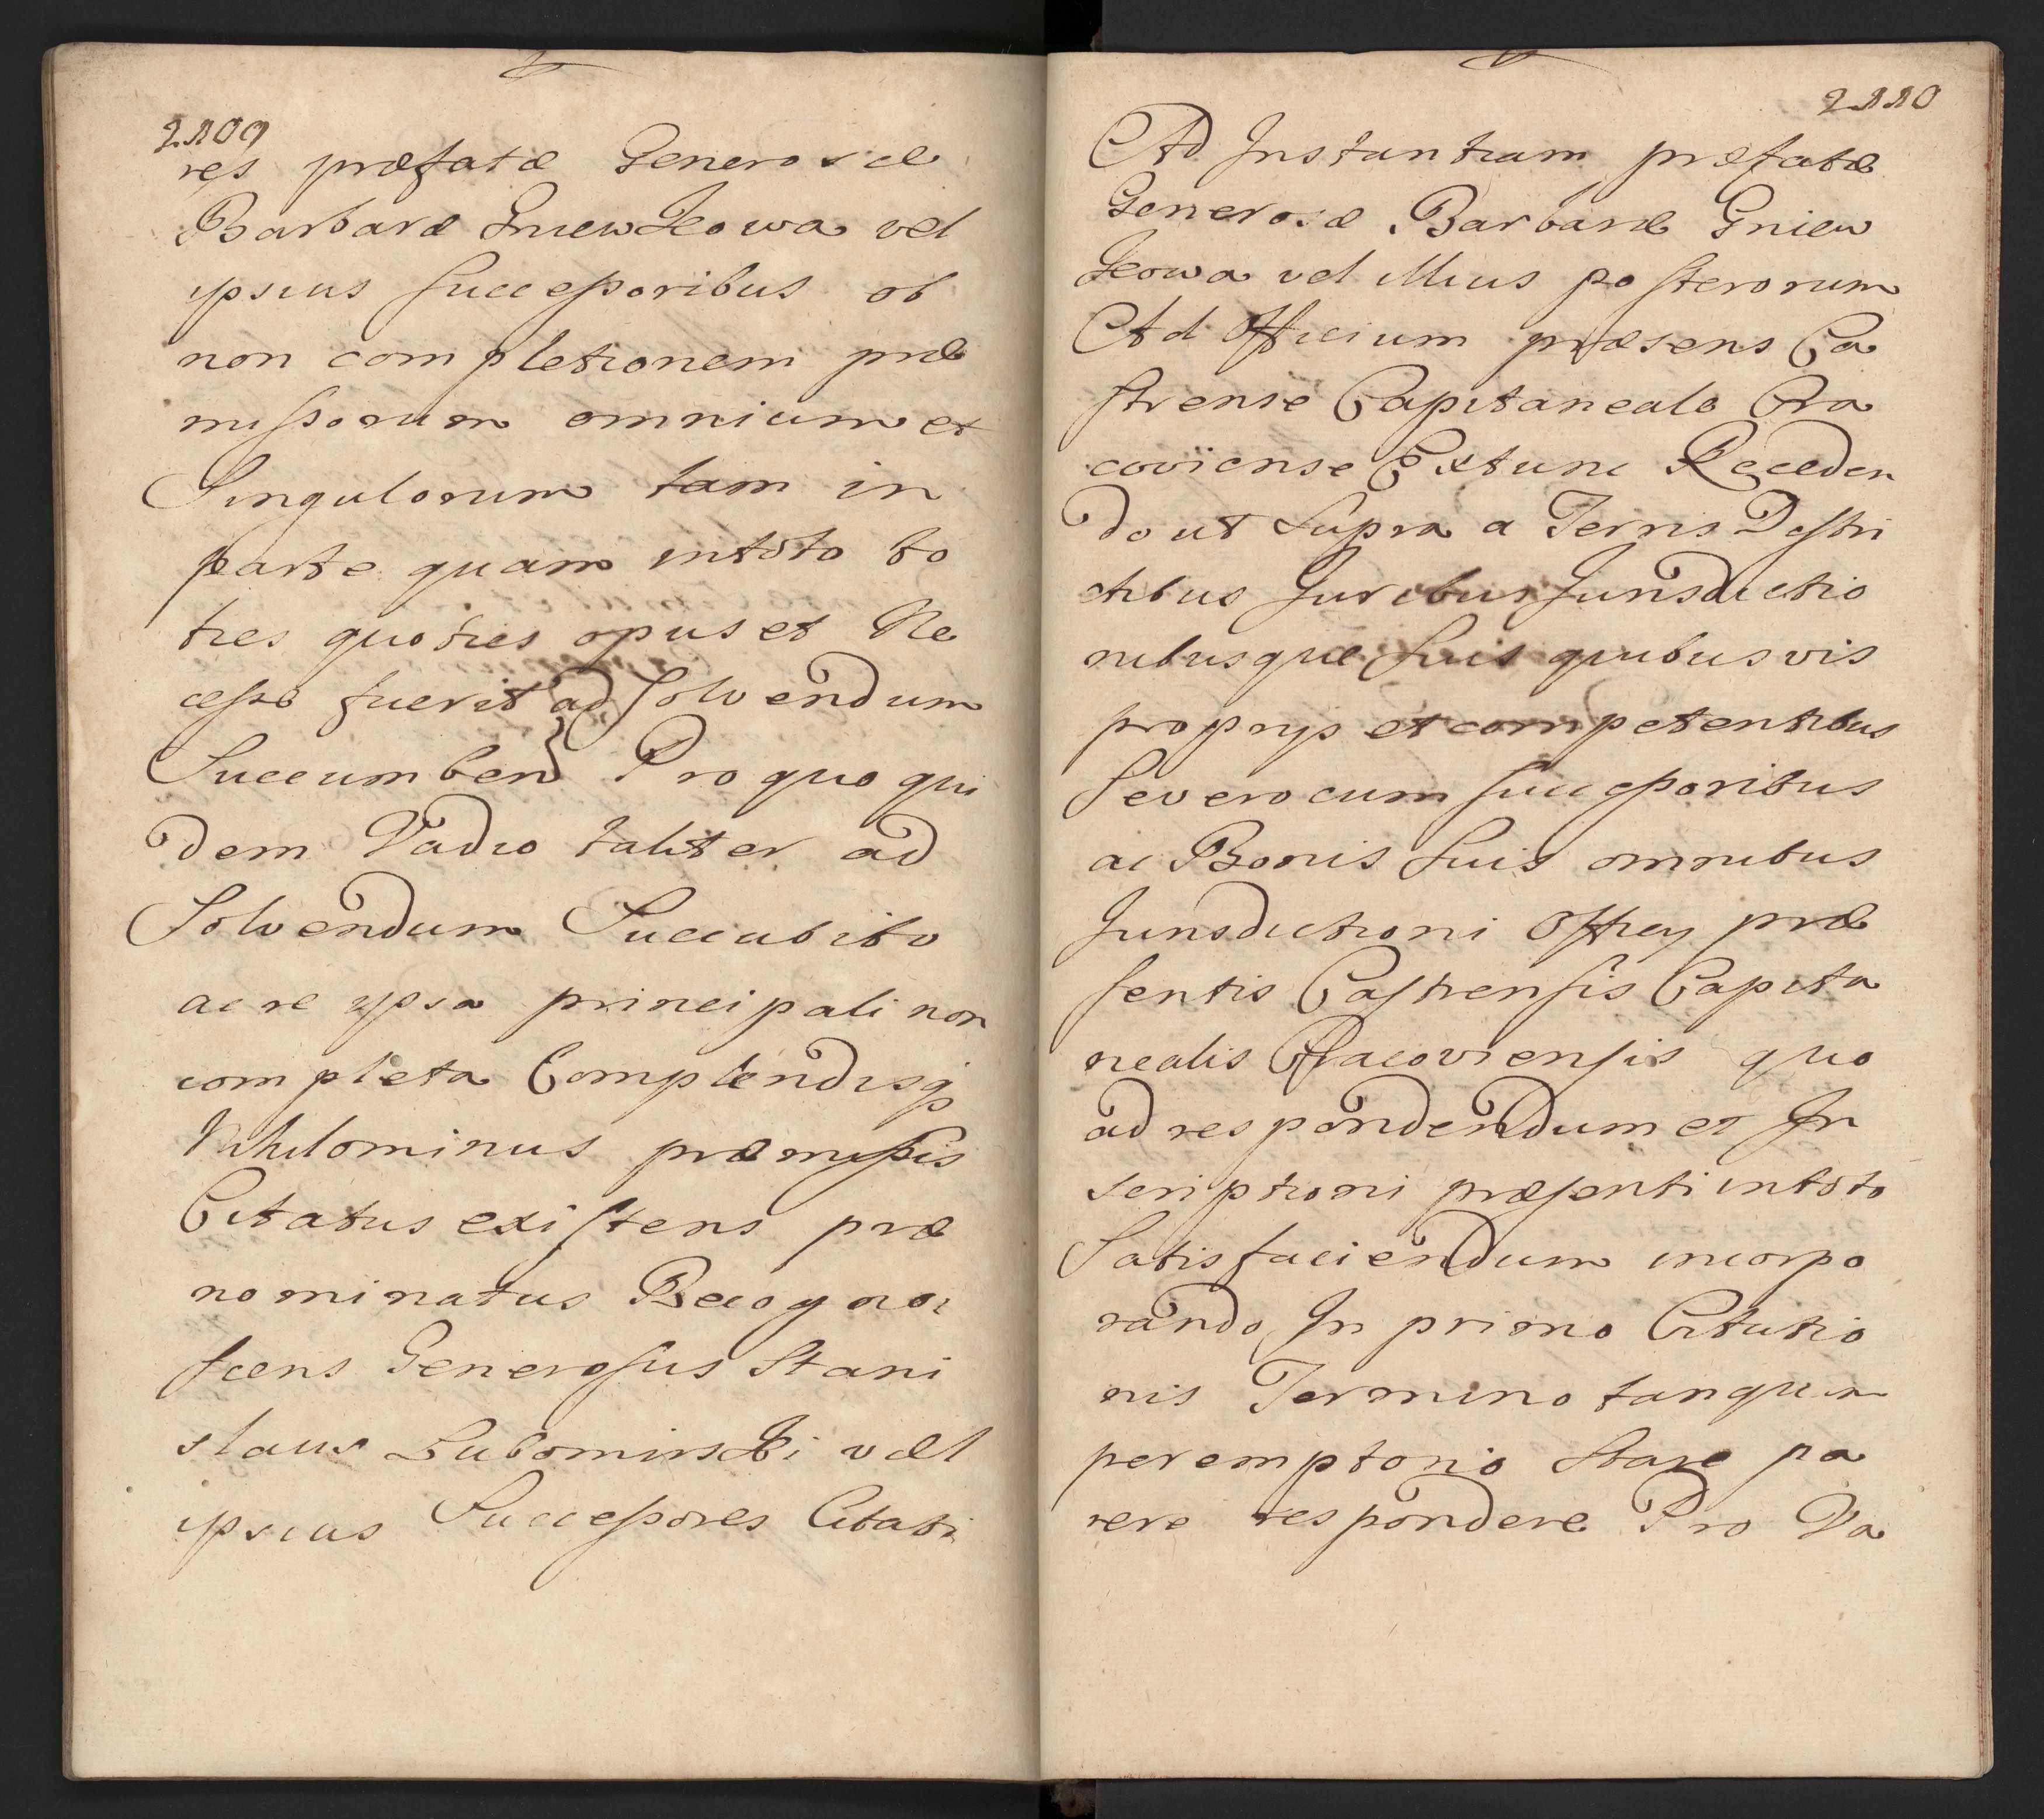 2109
res præfatæ Generosæ
Barbaræ Gniewkowa vel
ipsius Successoribus ob
non completionem præ
missorum omnium et
Singulorum tam in
parte quam intoto to
ties quoties opus et Ne
cesse fuerit ad Solvendum
Succumben Pro quo qui
dem Vadio taliter ad
Solvendum Succubito
ac re ipsa principali non
completa Complendisq
Nihilominus præmissis
Citatus existens præ
nominatus Recogno
scens Generosus Stani
slaus Lubomirski vel
ipsius Successores Citati
2110
Ad Instantiam præfatæ
Generosæ Barbaræ Gniew
kowa vel illius posterorum
Ad Officium præsens Ca
strense Capitaneale Cra
coviense Extunc Receden
do ut Supra a Terris Destri
ctibus Juribus Jurisdictio
nibusque Suis quibusvis
proprijs et competentibus
Seve ro cum Successoribus
ac Bonis Suis omnibus
Jurisdictioni Officy præ
sentis Castrensis Capita
nealis Cracoviensis quo
ad respondendum et In
scriptioni præsenti intoto
Satisfaciendum incorpo
rando In primo Citatio
nis Termino tanquam
peremptorio Stare pa
rere respondere Pro Va